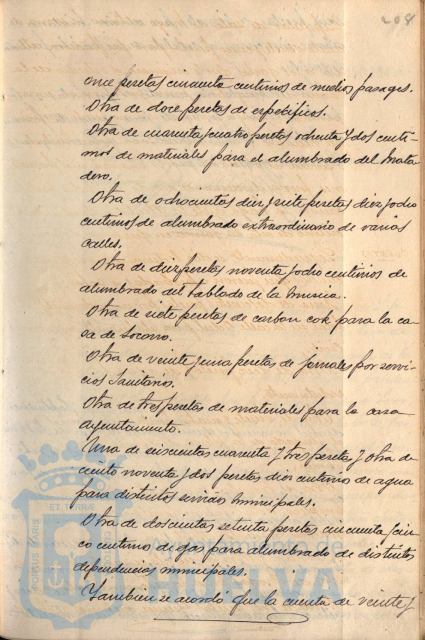 208
once pesetas cincuenta centimos de medios pasages.
Otra de doce pesetas de especificos.
Otra de cuarenta y cuatro pesetas ochenta y dos centi-
mos de materiales para el alumbrado del Mata
dero.
Otra de ochocientas diez y siete pesetas diez y ocho
centimos de alumbrado extraordinario de varias
calles.
Otra de diez pesetas noventa y ocho centimos de
alumbrado del tablado de la musica.
Otra de siete pesetas de carbon cok para la ca
sa de Socorro.
Otra de veinte y una pesetas de jornales por servi-
cios Sanitarios.
Otra de tres pesetas de materiales para la casa
ayuntamiento.
Una de seiscientas cuarenta y tres pesetas y otra de
ciento noventa y dos pesetas diez centimos de agua
para distintos servicios municipales.
Otra de doscientas setenta pesetas cincuenta y cin-
co centimos de gas para alumbrado de distintas
dependencias municipales.
Tambien se acordó que la cuenta de veinte y
PORTUS MARIS
ET TERRÆ
HUELVA